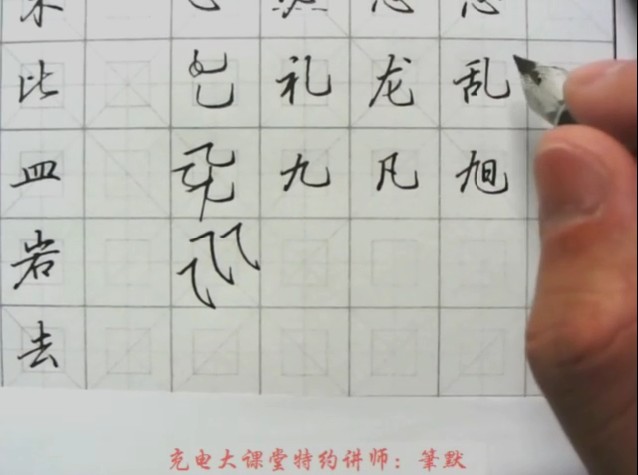 比 礼 龙 乱
皿 九 凡 旭
岩
去
充电大课堂特约讲师：筆默